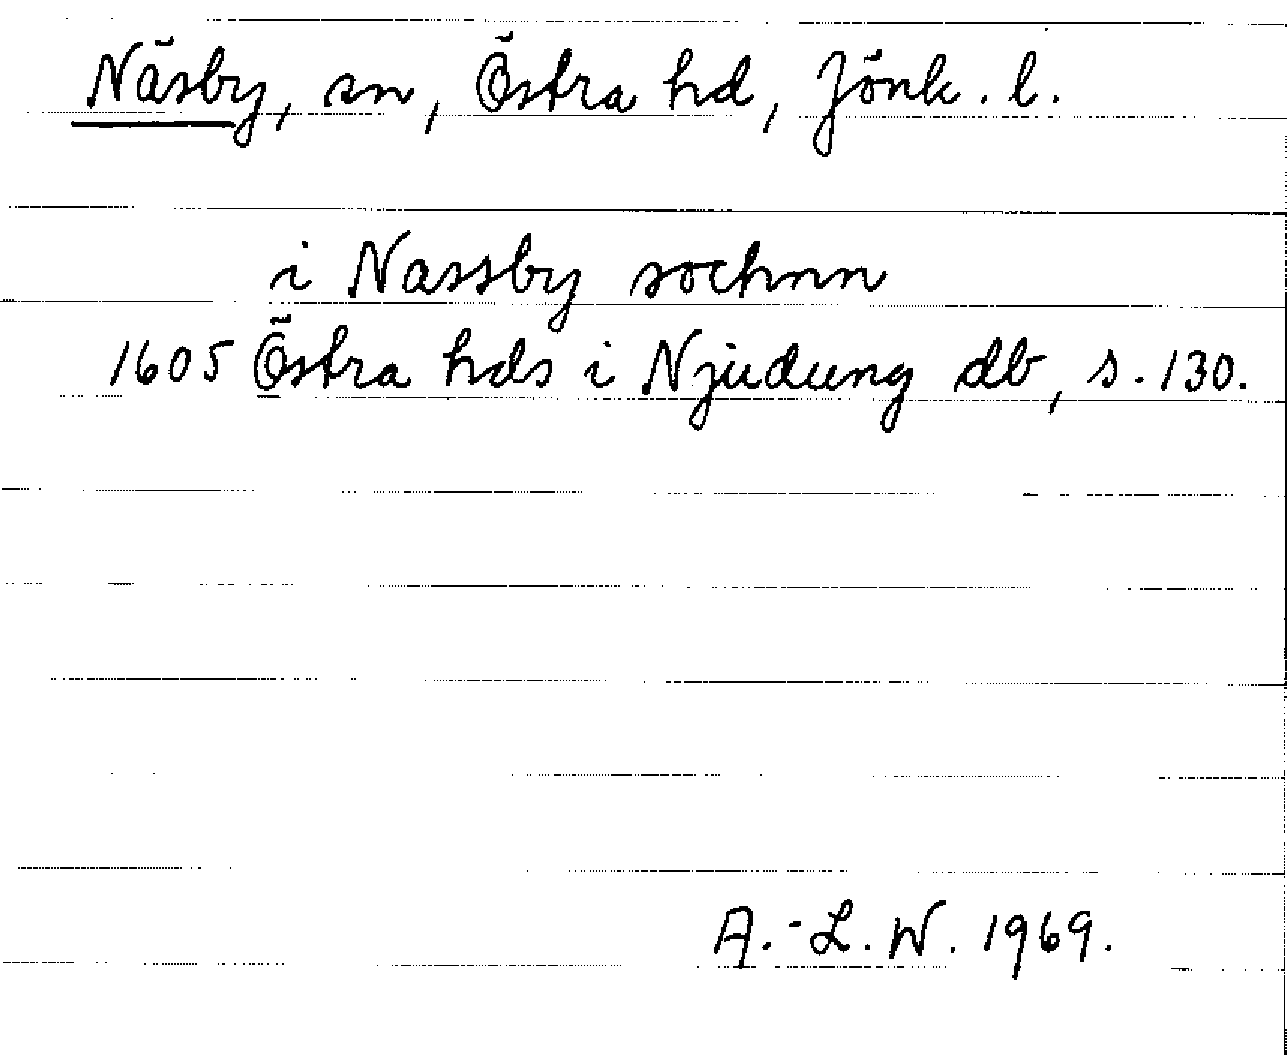 Näsby, sn, Östra hd, Jönk. l.
i Nassby sochnn
1605 Östra hds i Njudung db, s. 130.
A.-L. W. 1969.